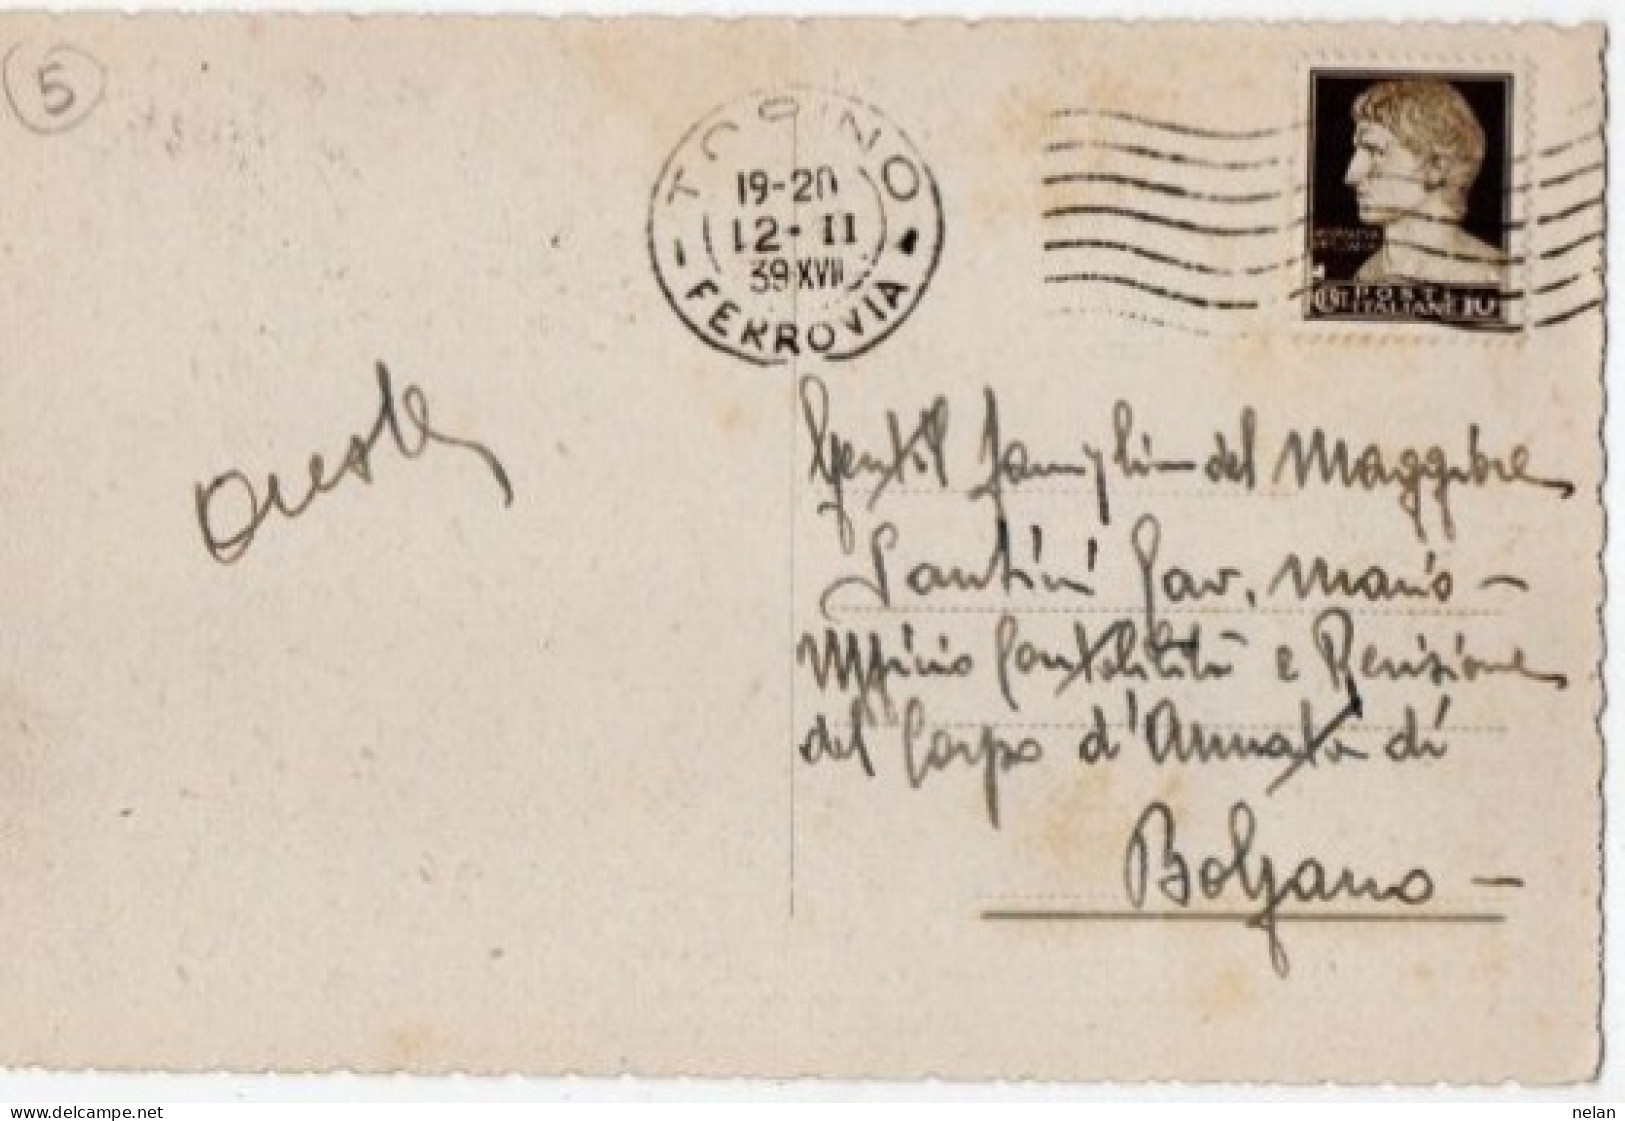 5
TORINO
19-20
12·II
39XVII
FERROVIA
POSTE
ITALIANE 10
Gentil famiglia del Maggiore
Santini Cav. Mario -
Ufficio Contabilità e Revisione
del Corpo d'Armata di
Bolzano -
delcampe.net
nelan